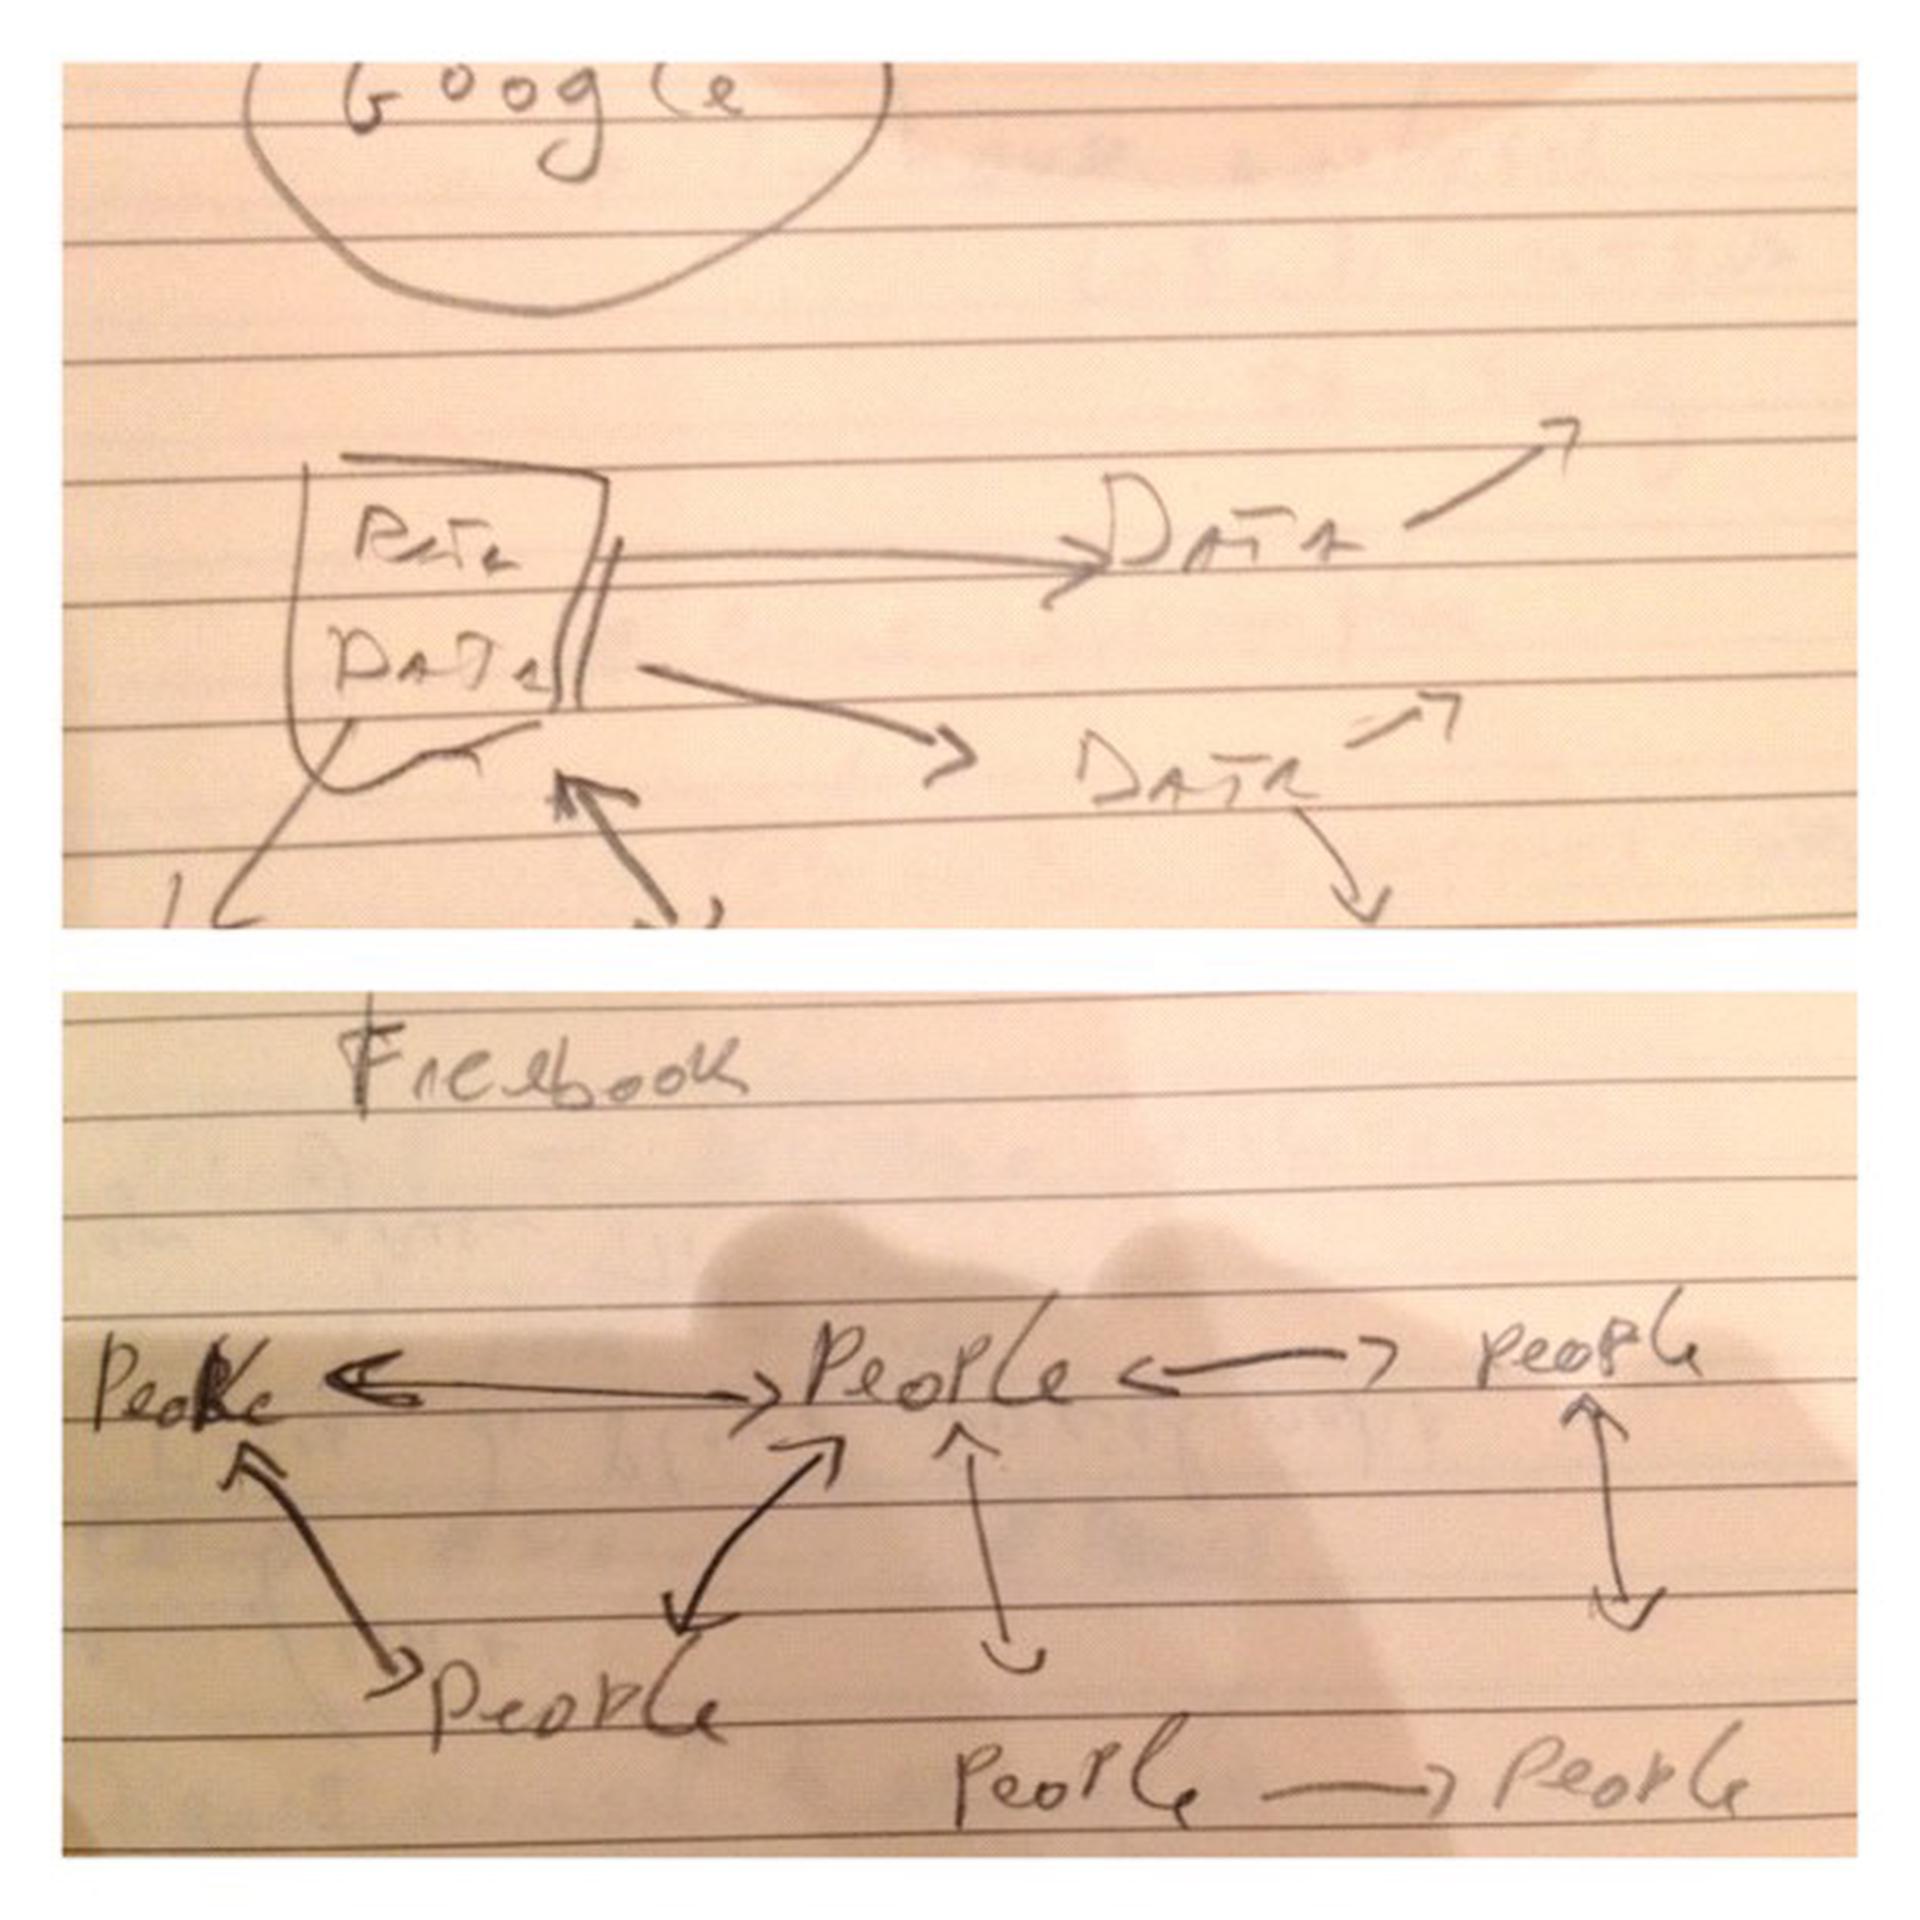 Google
DATA
DATA
DATA
DATA
Facebook
People
People
people
People
people
People